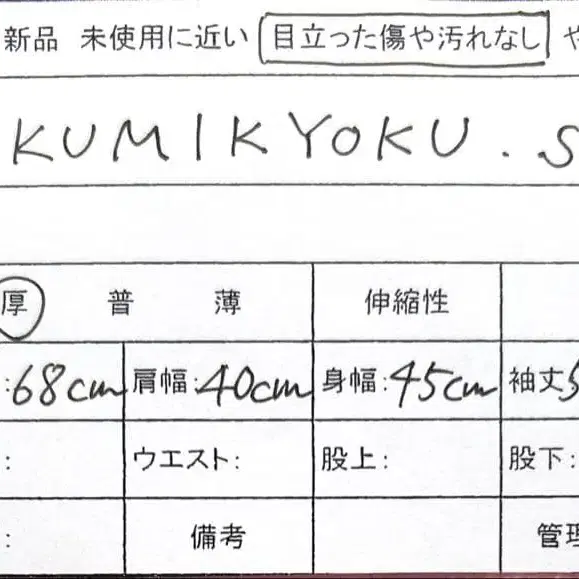 新品 未使用に近い 目立った傷や汚れなし や
KUMIKYOKU.S
厚 普 薄 伸縮性
:68cm 肩幅:40cm 身幅:45cm 袖丈5
: ウエスト: 股上: 股下:
: 備考 管理